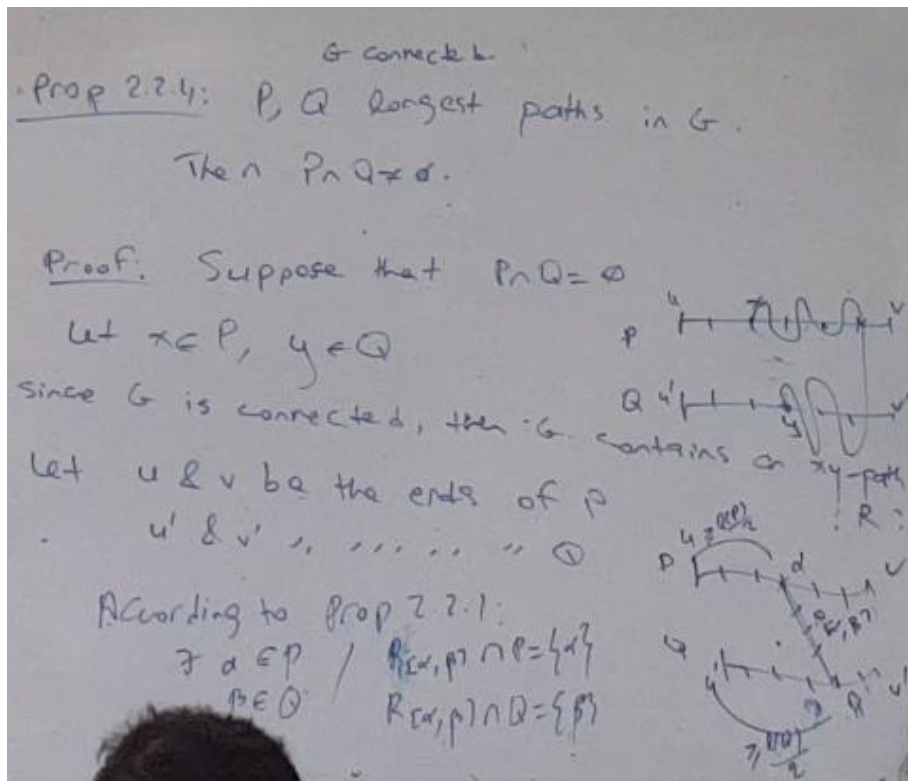 G connected
Prop 2.2.4: P, Q longest paths in G.
Then P∩Q≠∅.
Proof: Suppose that P∩Q=∅
Let x∈P, y∈Q
since G is connected, then G contains an xy-path R
Let u & v be the ends of P
u' & v' ,, ,, ,, ,, ,, Q
According to Prop 2.2.1:
∃ α∈P / R[α,β]∩P={α}
β∈Q R[α,β]∩Q={β}
u x v
P
Q u' y v'
P u ≥ l(P)/2 α v
R[α,β]
Q u' β v'
≥ l(Q)/2